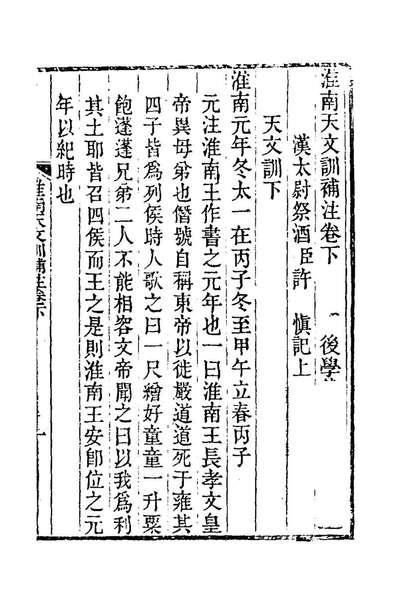 淮南天文訓補注卷下
後學
漢太尉祭酒臣許 慎記上
天文訓下
淮南元年冬太一在丙子冬至甲午立春丙子
元注淮南王作書之元年也一曰淮南王長孝文皇
帝異母弟也僭號自稱東帝以徙嚴道道死于雍其
四子皆爲列侯時人歌之曰一尺繒好童童一升粟
飽蓬蓬兄弟二人不能相容文帝聞之曰以我爲利
其土耶皆召四侯而王之是則淮南王安卽位之元
年以紀時也
淮南天文訓補注卷下